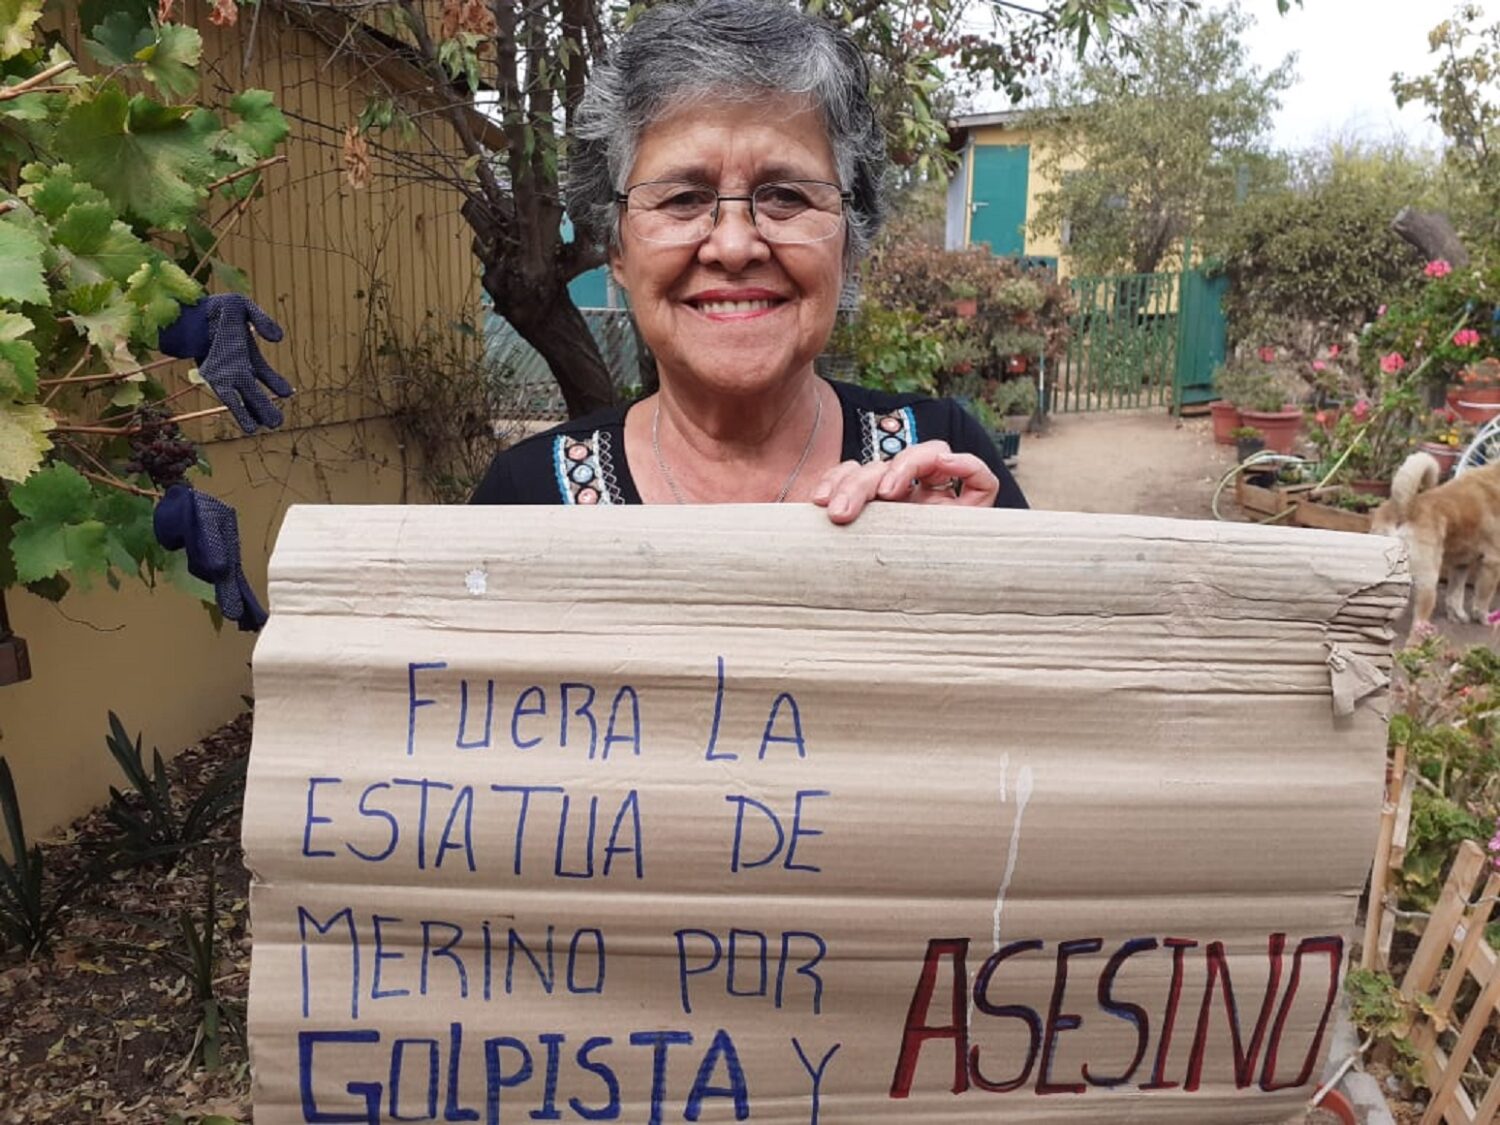 FUERA LA
ESTATUA DE
MERINO POR
GOLPISTA Y ASESINO